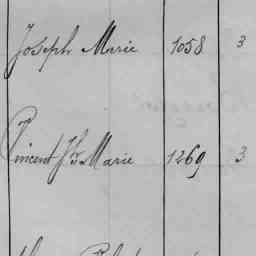 Joseph Marie 1058 3
Vincent Jh Marie 1269 3